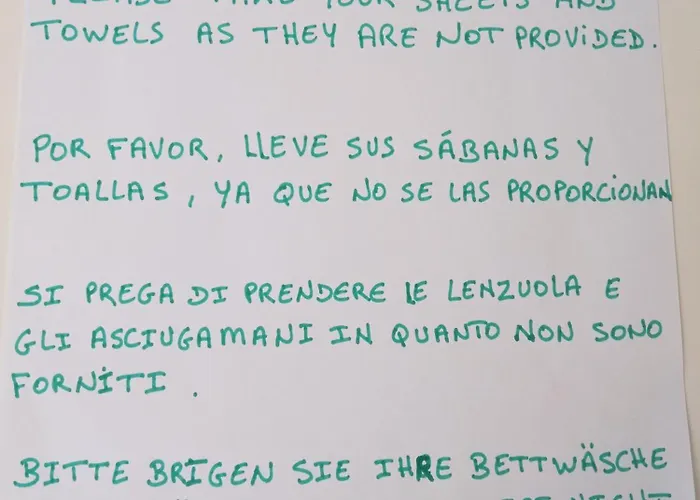 PLEASE TAKE YOUR SHEETS AND
TOWELS AS THEY ARE NOT PROVIDED.
POR FAVOR, LLEVE SUS SÁBANAS Y
TOALLAS, YA QUE NO SE LAS PROPORCIONAN
SI PREGA DI PRENDERE LE LENZUOLA E
GLI ASCIUGAMANI IN QUANTO NON SONO
FORNITI.
BITTE BRIGEN SIE IHRE BETTWÄSCHE